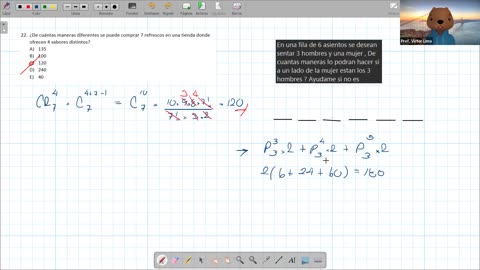 22. ¿De cuántas maneras diferentes se puede comprar 7 refrescos en una tienda donde
ofrecen 4 sabores distintos?
A) 135
B) 100
C) 120
D) 240
E) 40
En una fila de 6 asientos se desean
sentar 3 hombres y una mujer , De
cuantas maneras lo podran hacer si
a un lado de la mujer estan los 3
hombres ? Ayudame si no es
Prof. Victor Lima
CR 4 7 = C 4+7-1 7 = C 10 7 = 10.9.8.7! / 7!.3.2 = 120
3 4
→ P 3 3 . 2 + P 4 3 . 2 + P 5 3 . 2
2(6 + 24 + 60) = 180